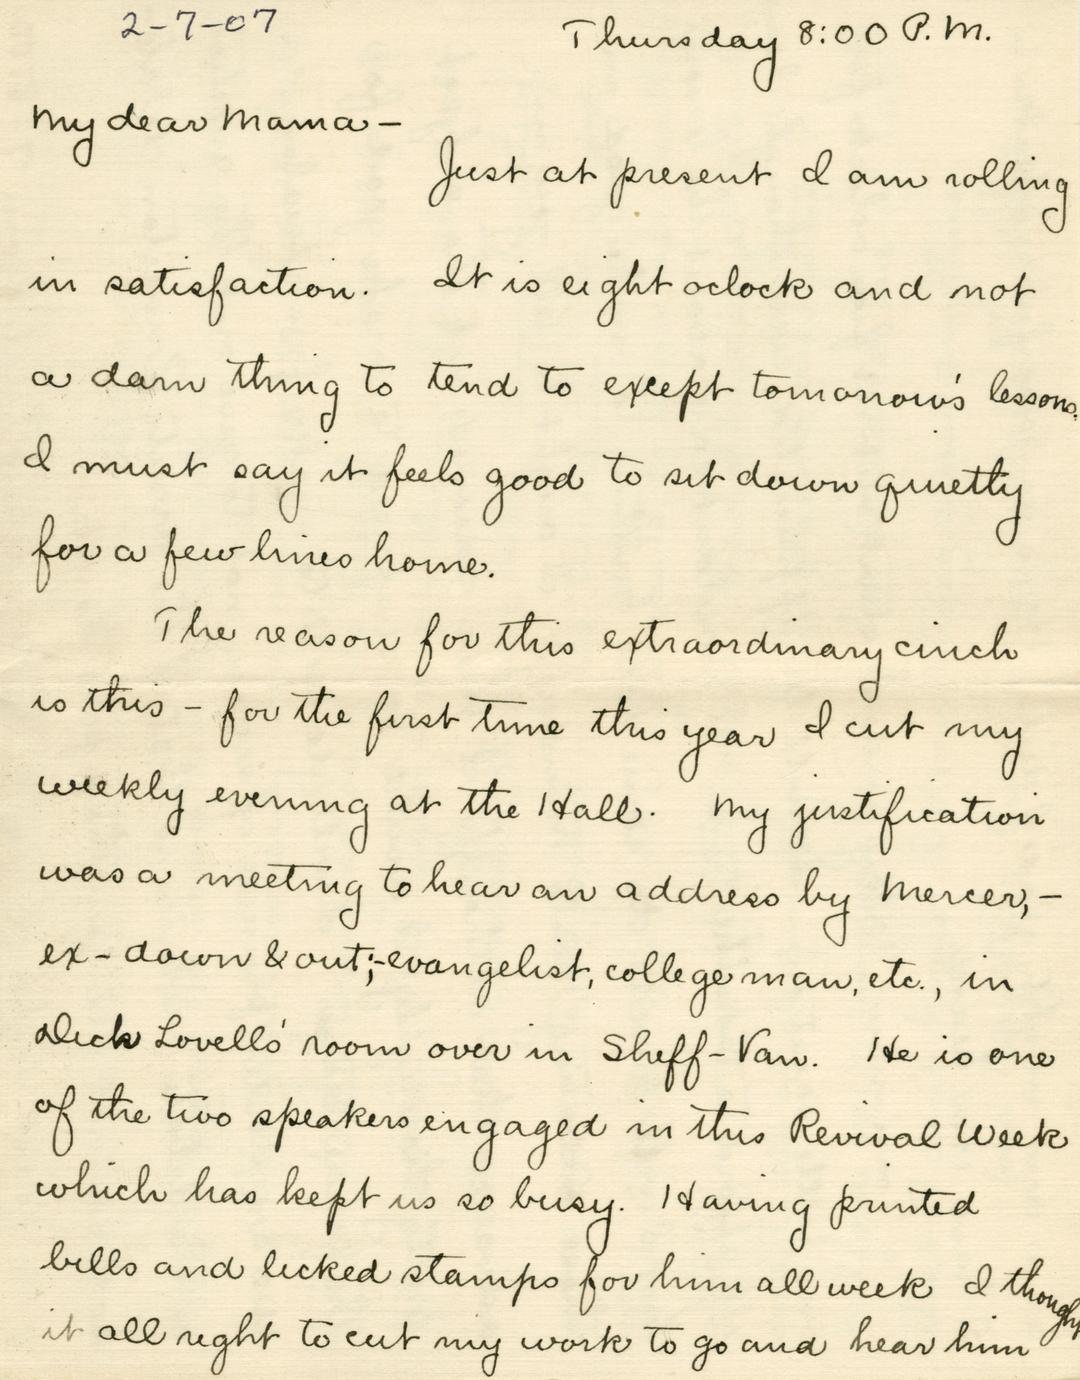 2-7-07
Thursday 8:00 P.M.
My dear Mama -
Just at present I am rolling
in satisfaction. It is eight oclock and not
a darn thing to tend to except tomorrow's lessons.
I must say it feels good to sit down quietly
for a few lines home.
The reason for this extraordinary cinch
is this - for the first time this year I cut my
weekly evening at the Hall. My justification
was a meeting to hear an address by Mercer, -
ex-down & out;-evangelist, college man, etc., in
Dick Lovell's room over in Sheff-Van. He is one
of the two speakers engaged in this Revival Week
which has kept us so busy. Having printed
bills and licked stamps for him all week I thought
it all right to cut my work to go and hear him